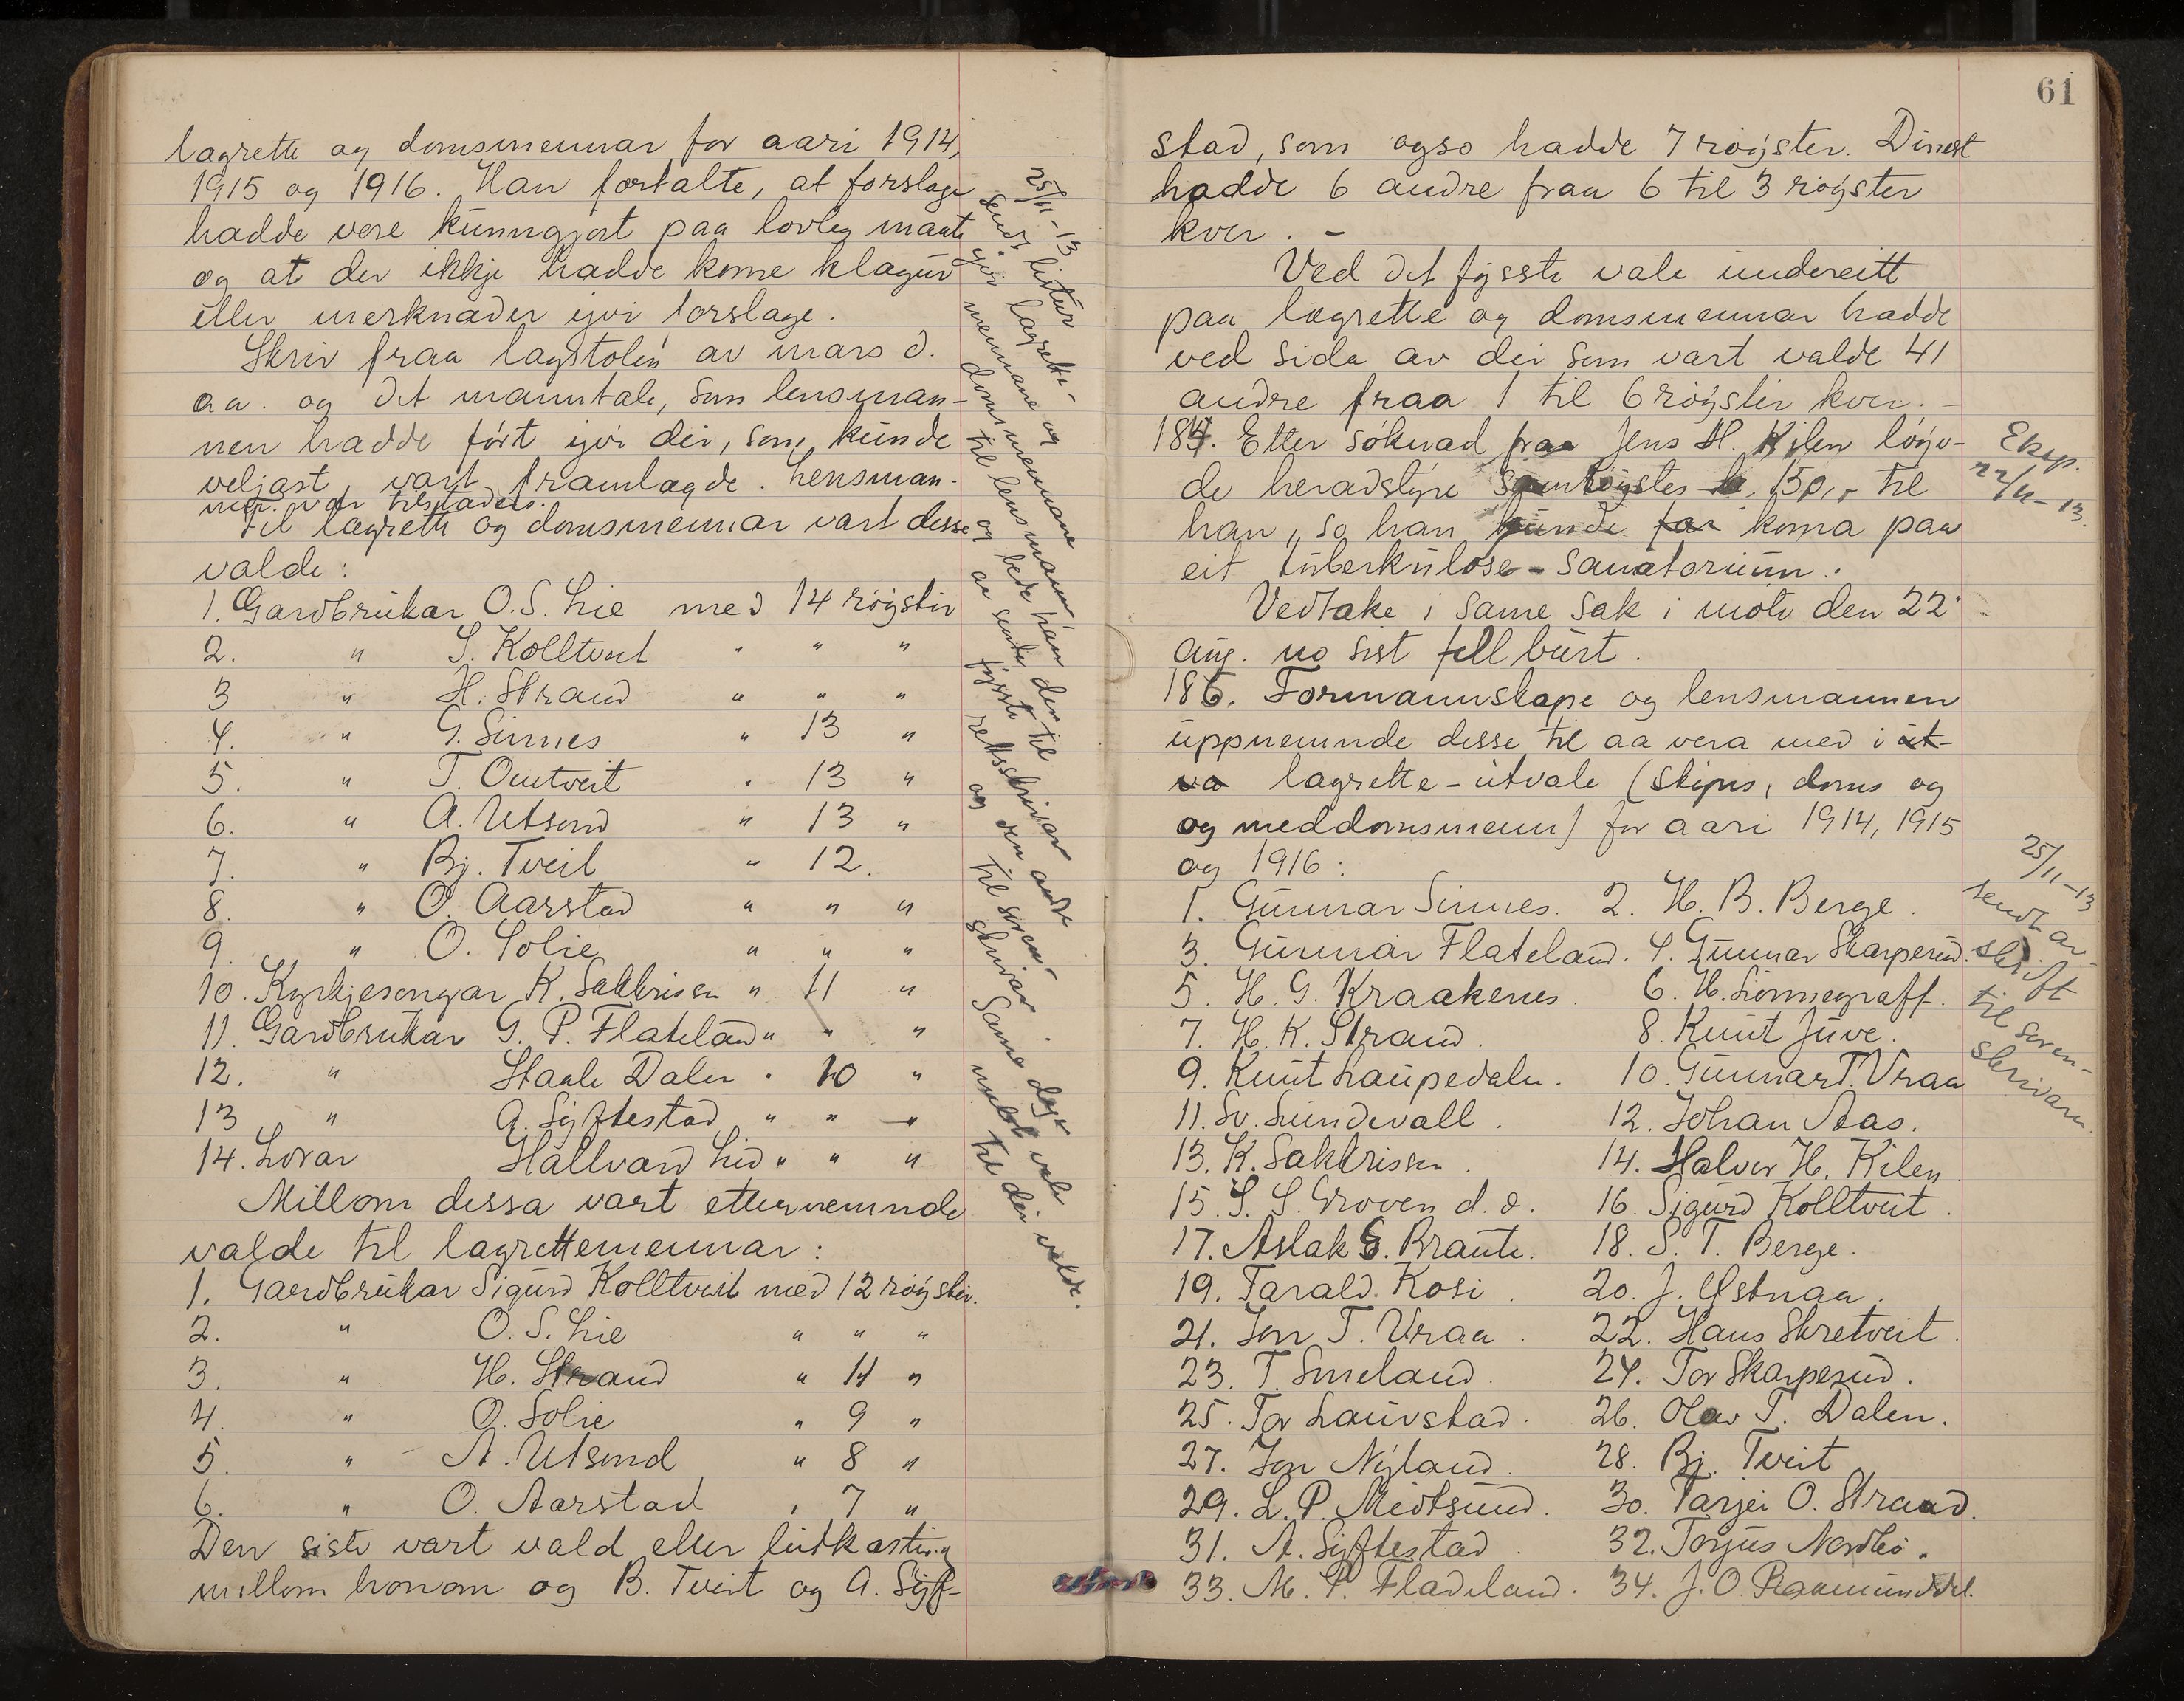 lagrette og domsmennar for aari 1914,
1915 og 1916. Han fortalte, at forslage
hadde vere kunngjort paa lovleg maate
og at der ikkje hadde kome klagur
eller merknader yvi forslage.
Skriv fraa lagstolen av mars d.
aa. og det manntale, som lensman-
nen hadde ført yvi dei, som kunde
veljast, vart framlagde. Lensman-
nen var tilstades.
Til lagrette og domsmennar vart desse
valde:
1. Gardbrukar O. S. Lie med 14 røyster
2. " S. Kolltveit " " "
3 " H. Strand " " "
4. " G. Sinnes " 13 "
5. " T. Omtveit " 13 "
6. " A. Utsond " 13 "
7. " Bj. Tveit " 12.
8. " O. Aarstad " " "
9. " O. Solie " " "
10. Kyrkjesongar K. Sakkrisen " 11 "
11. Gardbrukar G. P. Flateland " " "
12. " Staale Dalen " 10 "
13 " A. Syftestad " " "
14. Lærar Hallvard Lid " " "
Millom dessa vart etternemnde
valde til lagrettemennar:
1. Gardbrukar Sigurd Kolltveit med 12 røyster.
2. " O. S. Lie " " "
3. " H. Strand " 11 "
4. " O. Solie " 9 "
5. " A. Utsond " 8 "
6. " O. Aarstad " 7 "
Den siste vart vald etter lutkasting
millom honom og B. Tveit og A. Syf-
25/11-13
Sendt listur
yvi lagrette-
mennane og
domsmennane
til lensmannen
og bede han
aa sende den til
fyrste rettsskrivar
og den andre
til soren-
skrivar.
Same dag
meldt vale
til dei valde.
61
stad, som ogso hadde 7 røyster. Dinest
hadde 6 andre fraa 6 til 3 røyster
kver. -
Ved det fysste vale undereitt
paa lagrette og domsmennar hadde
ved sida av dei som vart valde 41
andre fraa 1 til 6 røyster kver. -
184. Etter søknad fraa Jens H. Kilen løyv-
de heradstyre samrøystes kr. 150,- til
han, so han kunde faa koma paa
eit tuberkulose-sanatorium.
Vedtake i same sak i møte den 22
aug. no sist fell burt.
186. Formannskape og lensmannen
uppnemnde desse til aa vera med i ut-
va lagrette-utvale (skips, doms og
og meddomsmenn) for aari 1914, 1915
og 1916:
1. Gunnar Sinnes. 2. H. B. Berge.
3. Gunnar Flateland. 4. Gunnar Skarperud.
5. H. G. Kraakenes. 6. H. Lønnegraff.
7. H. K. Strand. 8. Knut Juve.
9. Knut Laupedalen. 10. Gunnar T. Vraa
11. Sv. Sundevall. 12. Johan Aas.
13. K. Sakkrissen. 14. Halvor H. Kilen
15. S. S. Groven d. e. 16. Sigurd Kolltveit.
17. Aslak G. Braute. 18. S. T. Berge.
19. Tarald Kosi. 20. J. Østnaa.
21. Jon T. Vraa. 22. Hans Skretveit.
23. T. Smeland. 24. Tor Skarperud.
25. Tor Lauvstad. 26. Olav T. Dalen.
27. Jon Nyland. 28. Bj. Tveit
29. L. P. Midtsund. 30. Tarjei O. Strand.
31. A. Syftestad. 32. Torjus Nordbø.
33. M. P. Fladeland. 34. J. O. Raamunddal.
Eksp.
22/11-13.
25/11-13
sendt av-
skrift
til soren-
skrivaren.